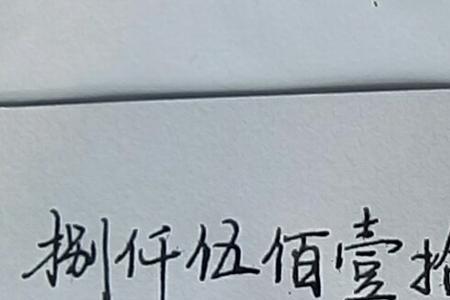 捌仟伍佰壹拾